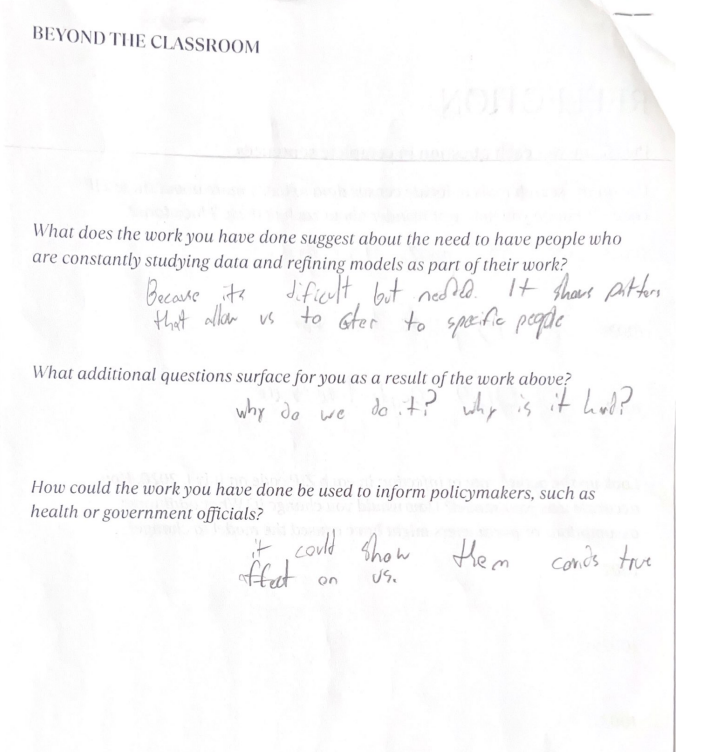 BEYOND THE CLASSROOM
What does the work you have done suggest about the need to have people who
are constantly studying data and refining models as part of their work?
Because its dificult but needed. It shows patters
that allow us to cater to specific people
What additional questions surface for you as a result of the work above?
why do we do it? why is it hard?
How could the work you have done be used to inform policymakers, such as
health or government officials?
it could show them covids true
affect on us.